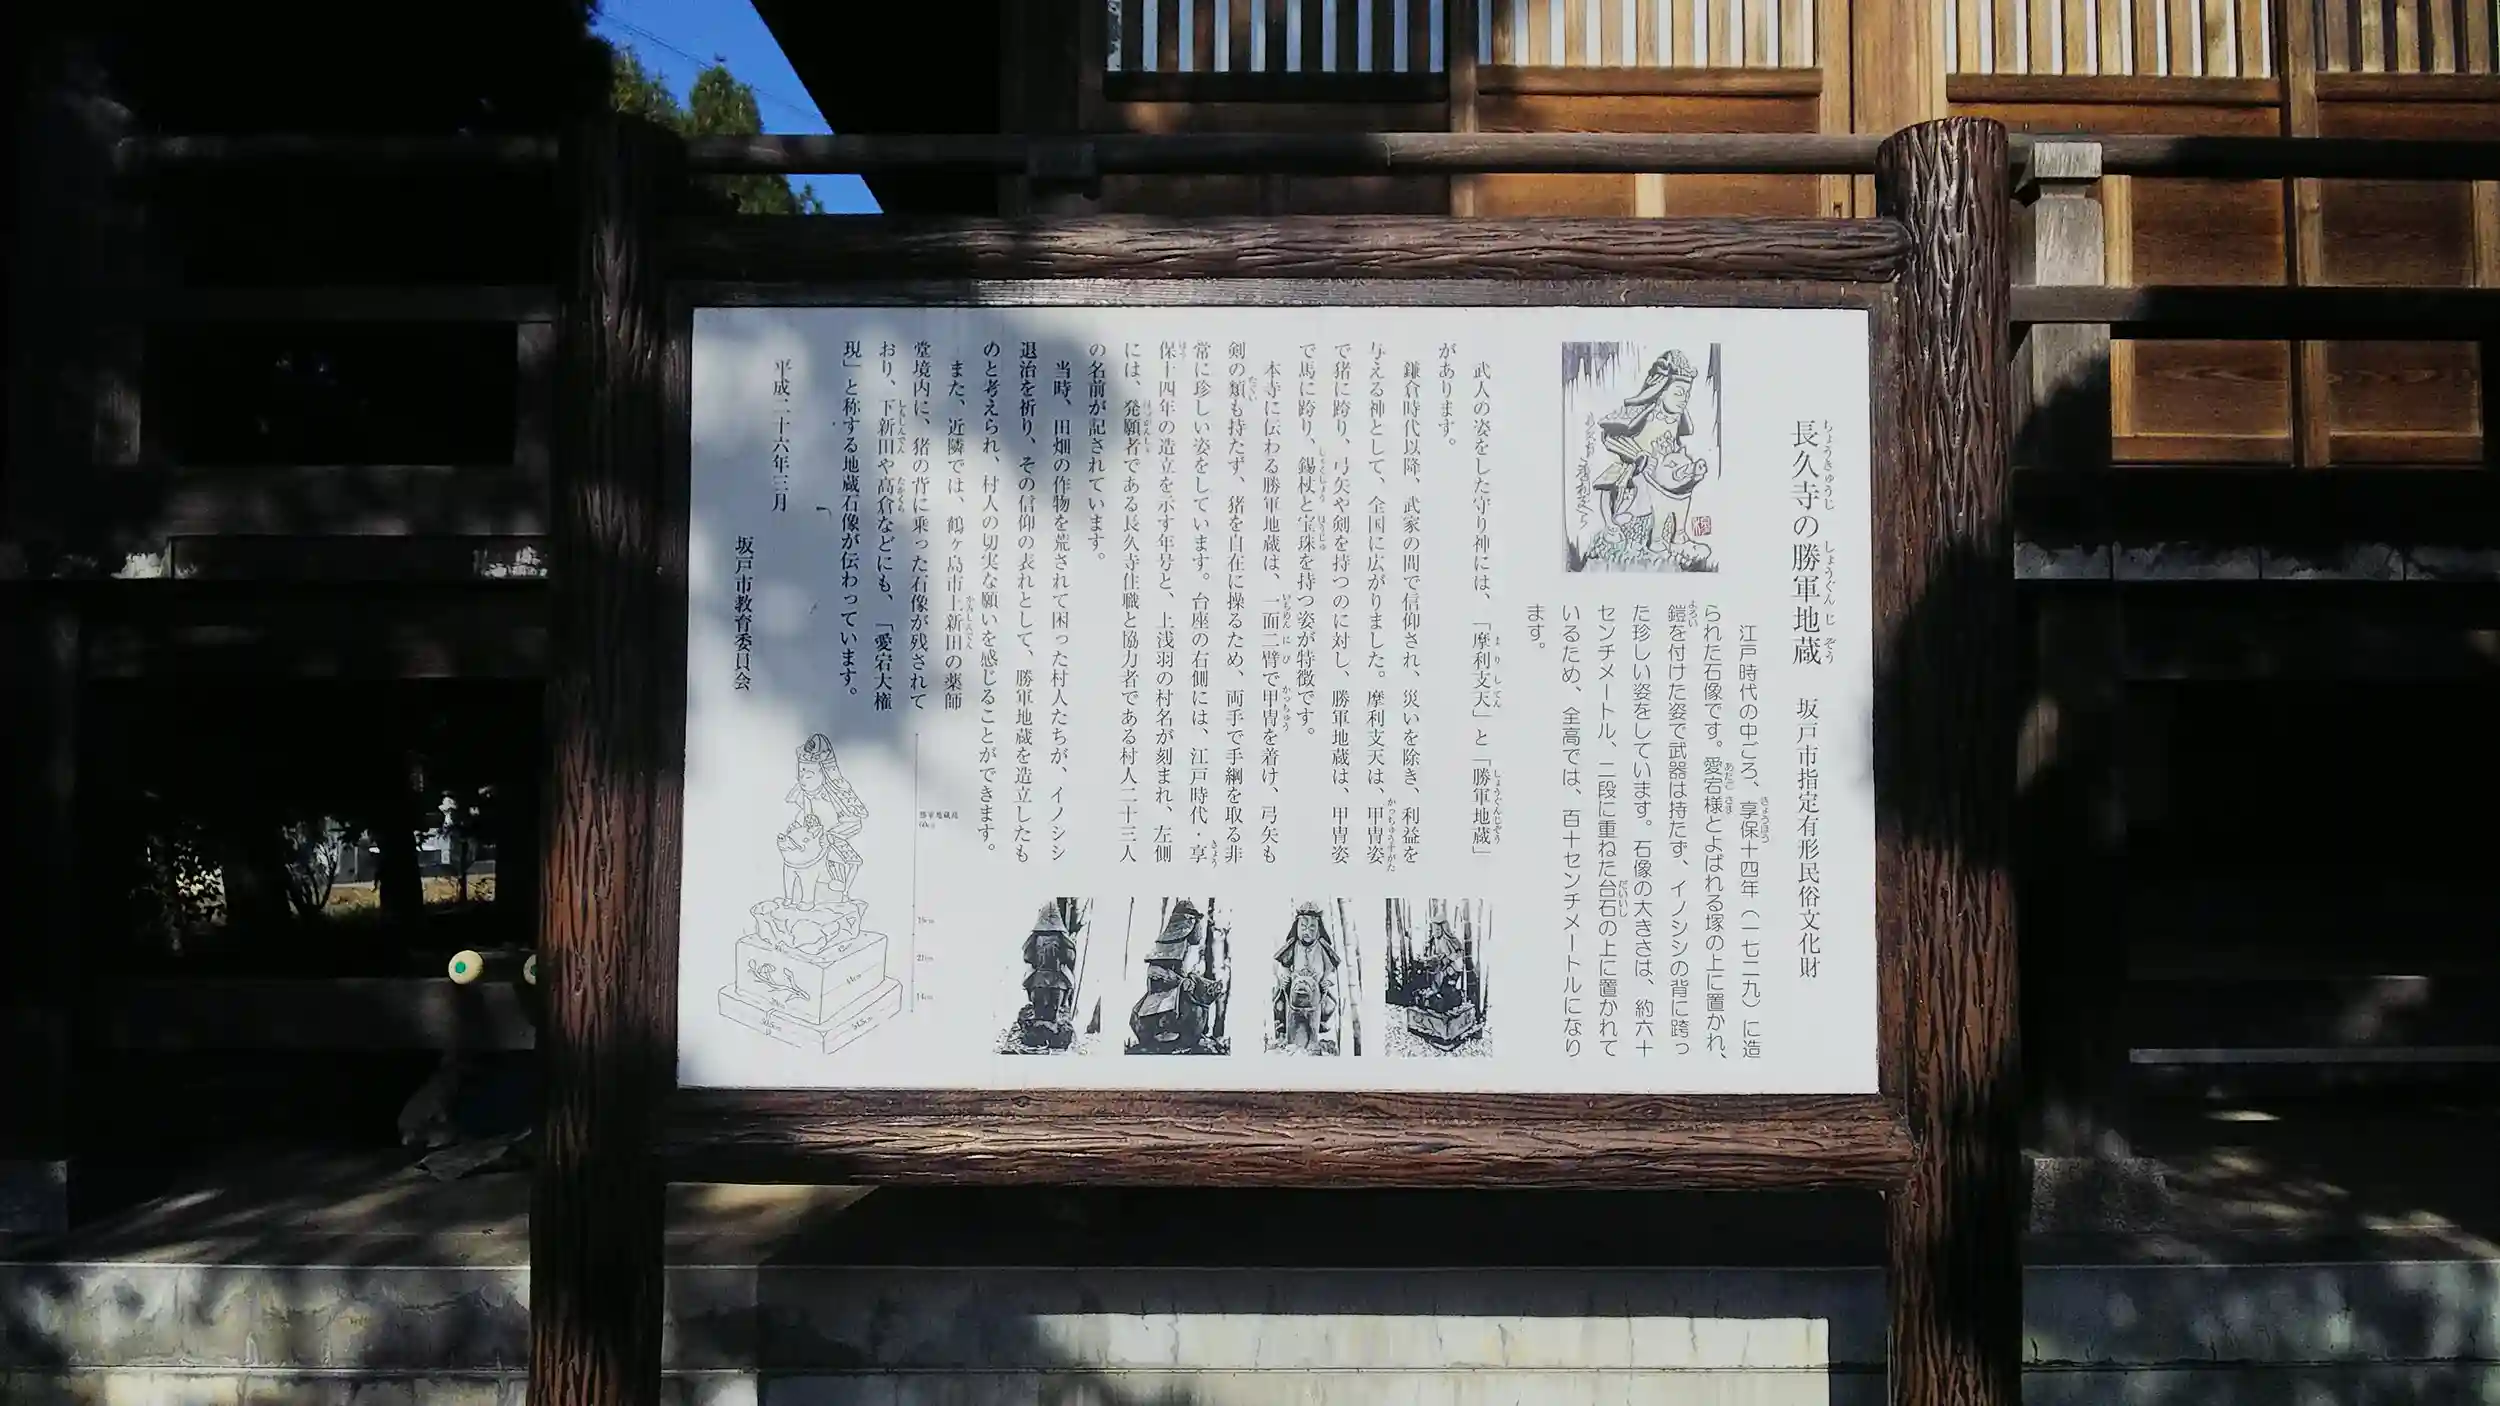 長久寺の勝軍地蔵　坂戸市指定有形民俗文化財
ちょうきゅうじ　しょうぐんじぞう
江戸時代の中ごろ、享保十四年（一七二九）に造
きょうほう
られた石像です。愛宕様とよばれる塚の上に置かれ、
あたご さま
鎧を付けた姿で武器は持たず、イノシシの背に跨っ
よろい
た珍しい姿をしています。石像の大きさは、約六十
センチメートル、二段に重ねた台石の上に置かれて
だいいし
いるため、全高では、百十センチメートルになり
ます。
武人の姿をした守り神には、「摩利支天」と「勝軍地蔵」
まりしてん　しょうぐんじぞう
があります。
鎌倉時代以降、武家の間で信仰され、災いを除き、利益を
与える神として、全国に広がりました。摩利支天は、甲冑姿
かっちゅうすがた
で猪に跨り、弓矢や剣を持つのに対し、勝軍地蔵は、甲冑姿
で馬に跨り、錫杖と宝珠を持つ姿が特徴です。
しゃくじょう　ほうじゅ
本寺に伝わる勝軍地蔵は、一面二臂で甲冑を着け、弓矢も
いちめんにび　かっちゅう
剣の類も持たず、猪を自在に操るため、両手で手綱を取る非
たぐい
常に珍しい姿をしています。台座の右側には、江戸時代・享
きょう
保十四年の造立を示す年号と、上浅羽の村名が刻まれ、左側
ほう
には、発願者である長久寺住職と協力者である村人二十三人
ほつがんしゃ
の名前が記されています。
当時、田畑の作物を荒されて困った村人たちが、イノシシ
退治を祈り、その信仰の表れとして、勝軍地蔵を造立したも
のと考えられ、村人の切実な願いを感じることができます。
また、近隣では、鶴ヶ島市上新田の薬師
かみしんでん
堂境内に、猪の背に乗った石像が残されて
おり、下新田や高倉などにも、「愛宕大権
しもしんでん　たかくら
現」と称する地蔵石像が伝わっています。
平成二十六年三月
坂戸市教育委員会
勝軍地蔵
60cm
21cm
14cm